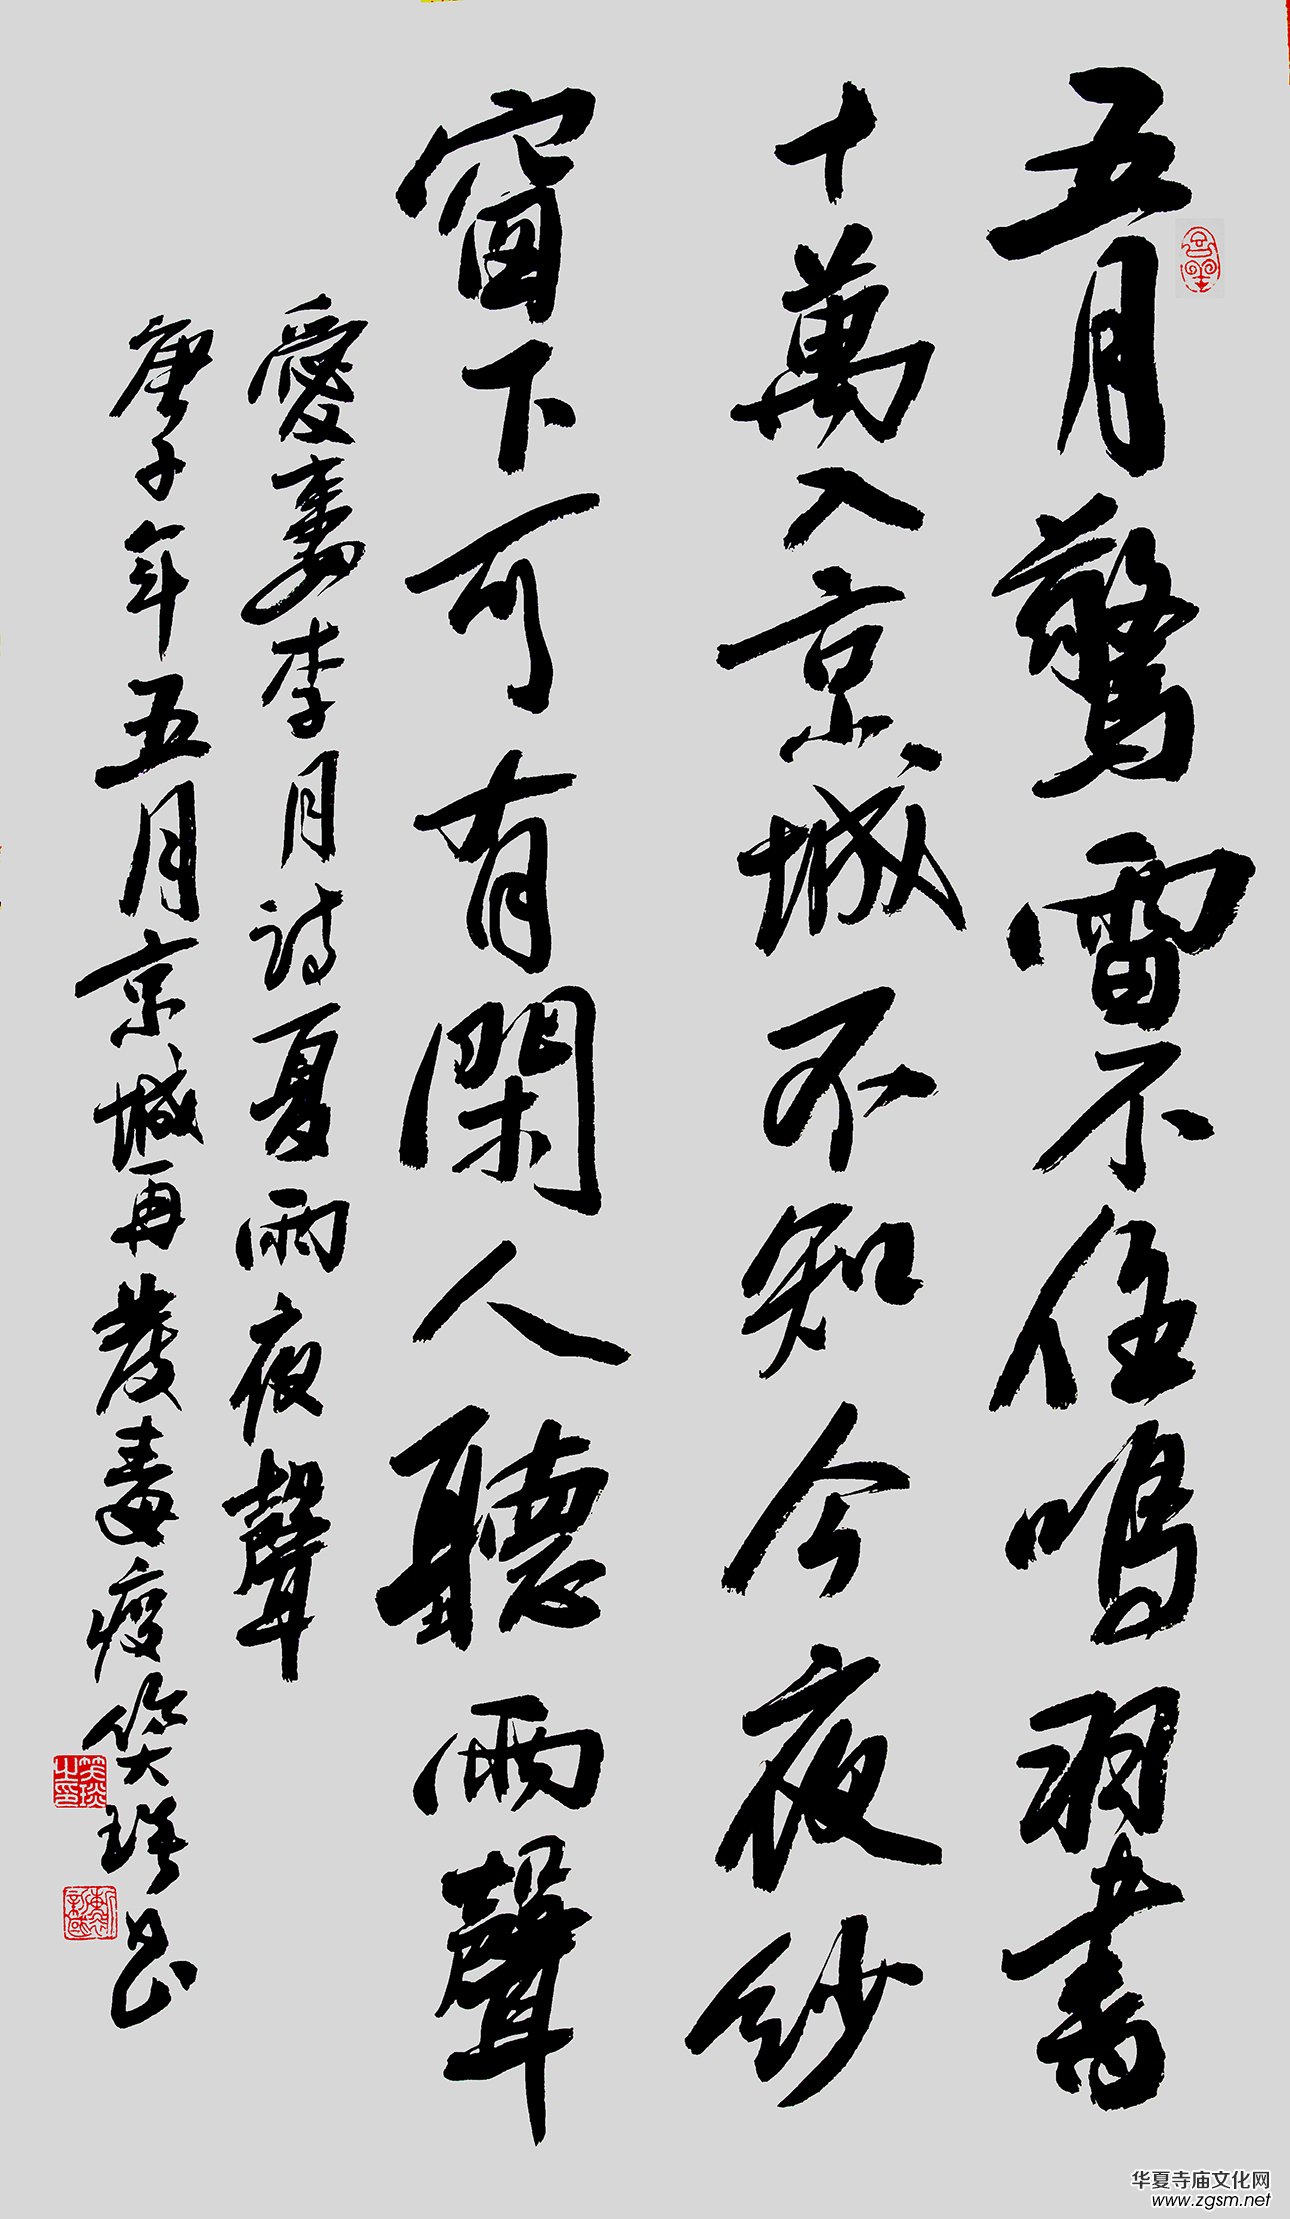 五月驚雷不住鳴羽書
十萬入京城不知今夜紗
窗下可有閑人聽雨聲
愛妻李月詩夏雨夜聲
庚子年五月京城再發毒疫笑琰書
華夏寺庙文化网
www.zgsm.net